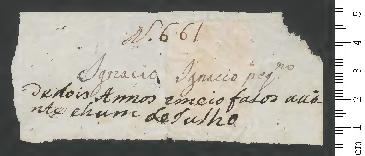 N. 661
Ignacio Ignacio peq.no
de dois Annos emeio fatos aúa
nte ehum de Julho
cm 1 2 3 4 5